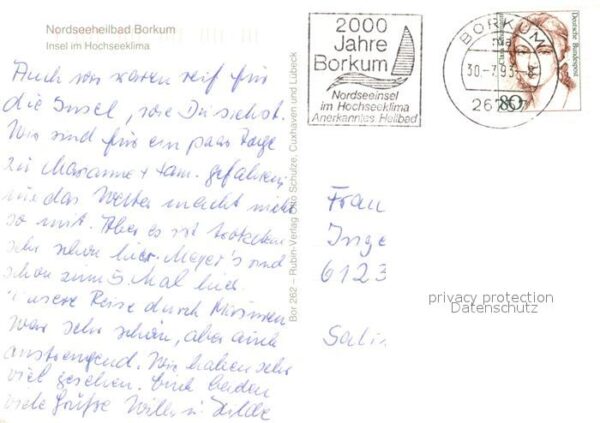 Nordseeheilbad Borkum
Insel im Hochseeklima
Auch wir waren reif für
die Insel, wie Du siehst.
Wir sind für ein paar Tage
zu Marianne + Fam. gefahren,
nur das Wetter macht nicht
so mit. Aber es ist trotzdem
sehr schön hier. Meyer's sind
schon zum 5. Mal hier.
Unsere Reise durch
war sehr schön, aber auch
anstrengend. Wir haben sehr
viel gesehen. Euch beiden
viele Grüße Willi u. Hilde
Bor 262 – Rubin-Verlag Otto Schulze, Cuxhaven und Lübeck
2000
Jahre
Borkum
Nordseeinsel
im Hochseeklima
Anerkanntes Heilbad
BORKUM
30.-7.93.-8
26757
Deutsche Bundespost
80
Frau
Inge
6123
privacy protection
Datenschutz